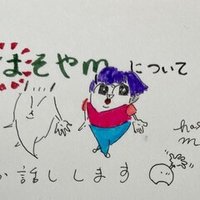 はそやmについて
お話しします
has
m